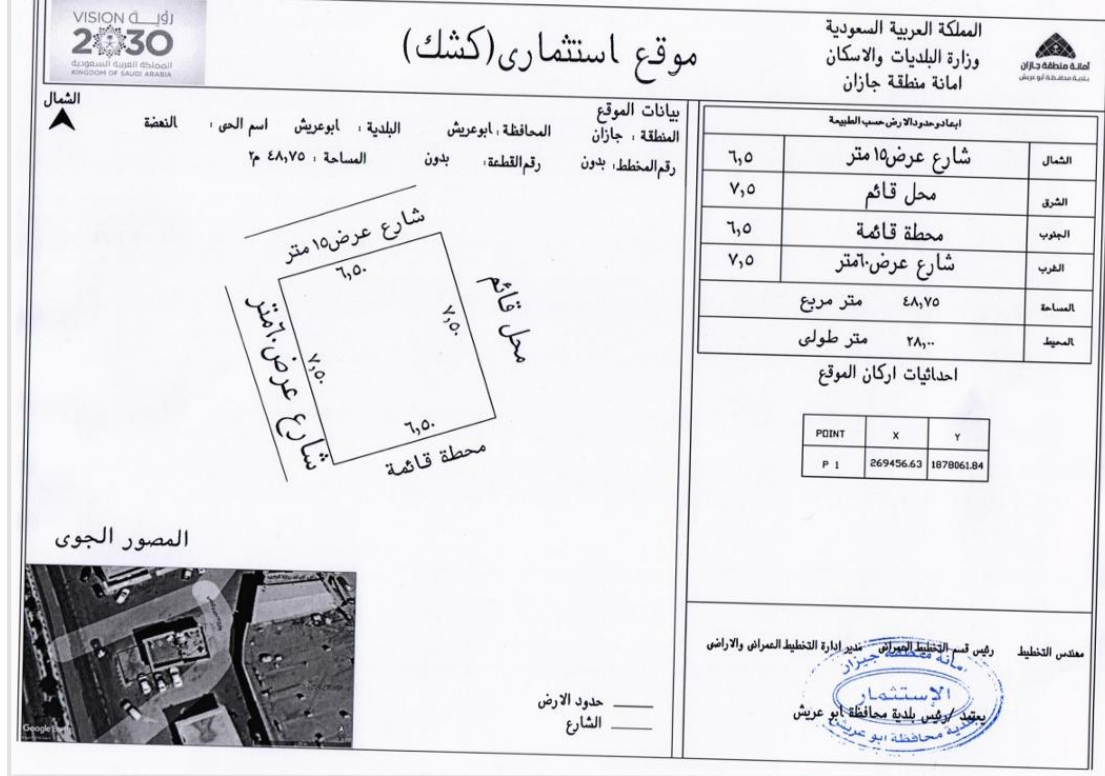 VISION رؤيــة
2030
المملكة العربية السعودية
KINGDOM OF SAUDI ARABIA
موقع استثمارى(كشك)
المملكة العربية السعودية
وزارة البلديات والاسكان
امانة منطقة جازان
أمانة منطقة جازان
بلدية محافظة أبو عريش
الشمال
بيانات الموقع
المنطقة : جازان المحافظة : ابوعريش البلدية : ابوعريش اسم الحى : النهضة
رقم المخطط: بدون رقم القطعة: بدون المساحة : ٤٨,٧٥ م٢
شارع عرض١٥ متر
٦,٥٠
محل قائم
٧,٥٠
شارع عرض٦٠متر
٧,٥٠
٦,٥٠
محطة قائمة
المصور الجوى
Google Earth
حدود الارض
الشارع
ابعاد وحدود الارض حسب الطبيعة
الشمال شارع عرض١٥ متر ٦,٥
الشرق محل قائم ٧,٥
الجنوب محطة قائمة ٦,٥
الغرب شارع عرض٦٠متر ٧,٥
المساحة ٤٨,٧٥ متر مربع
المحيط ٢٨,٠٠ متر طولى
احداثيات اركان الموقع
POINT X Y
P 1 269456.63 1878061.84
مهندس التخطيط رئيس قسم التخطيط العمرانى مدير ادارة التخطيط العمرانى والاراضى
يعتمد /رئيس بلدية محافظة ابو عريش
أمانة منطقة جيزان
الإستثمار
بلدية محافظة ابو عريش